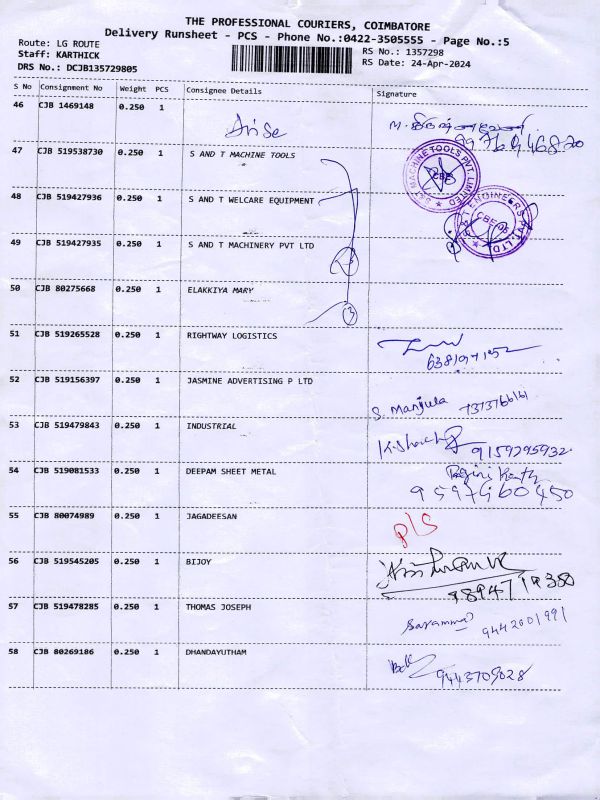 THE PROFESSIONAL COURIERS, COIMBATORE
Delivery Runsheet - PCS - Phone No.:0422-3505555 - Page No.:5
Route: LG ROUTE
Staff: KARTHICK
DRS No.: DCJB135729805
RS No.: 1357298
RS Date: 24-Apr-2024
S No Consignment No Weight PCS Consignee Details Signature
46 CJB 1469148 0.250 1
Arise
47 CJB 519538730 0.250 1 S AND T MACHINE TOOLS
48 CJB 519427936 0.250 1 S AND T WELCARE EQUIPMENT
49 CJB 519427935 0.250 1 S AND T MACHINERY PVT LTD
50 CJB 80275668 0.250 1 ELAKKIYA MARY
3
51 CJB 519265528 0.250 1 RIGHTWAY LOGISTICS
52 CJB 519156397 0.250 1 JASMINE ADVERTISING P LTD
S. Manjula
53 CJB 519479843 0.250 1 INDUSTRIAL
9159295932
54 CJB 519081533 0.250 1 DEEPAM SHEET METAL
9597960450
55 CJB 80074989 0.250 1 JAGADEESAN
P/S
56 CJB 519545205 0.250 1 BIJOY
57 CJB 519478285 0.250 1 THOMAS JOSEPH
Saramma 9442001991
58 CJB 80269186 0.250 1 DHANDAYUTHAM